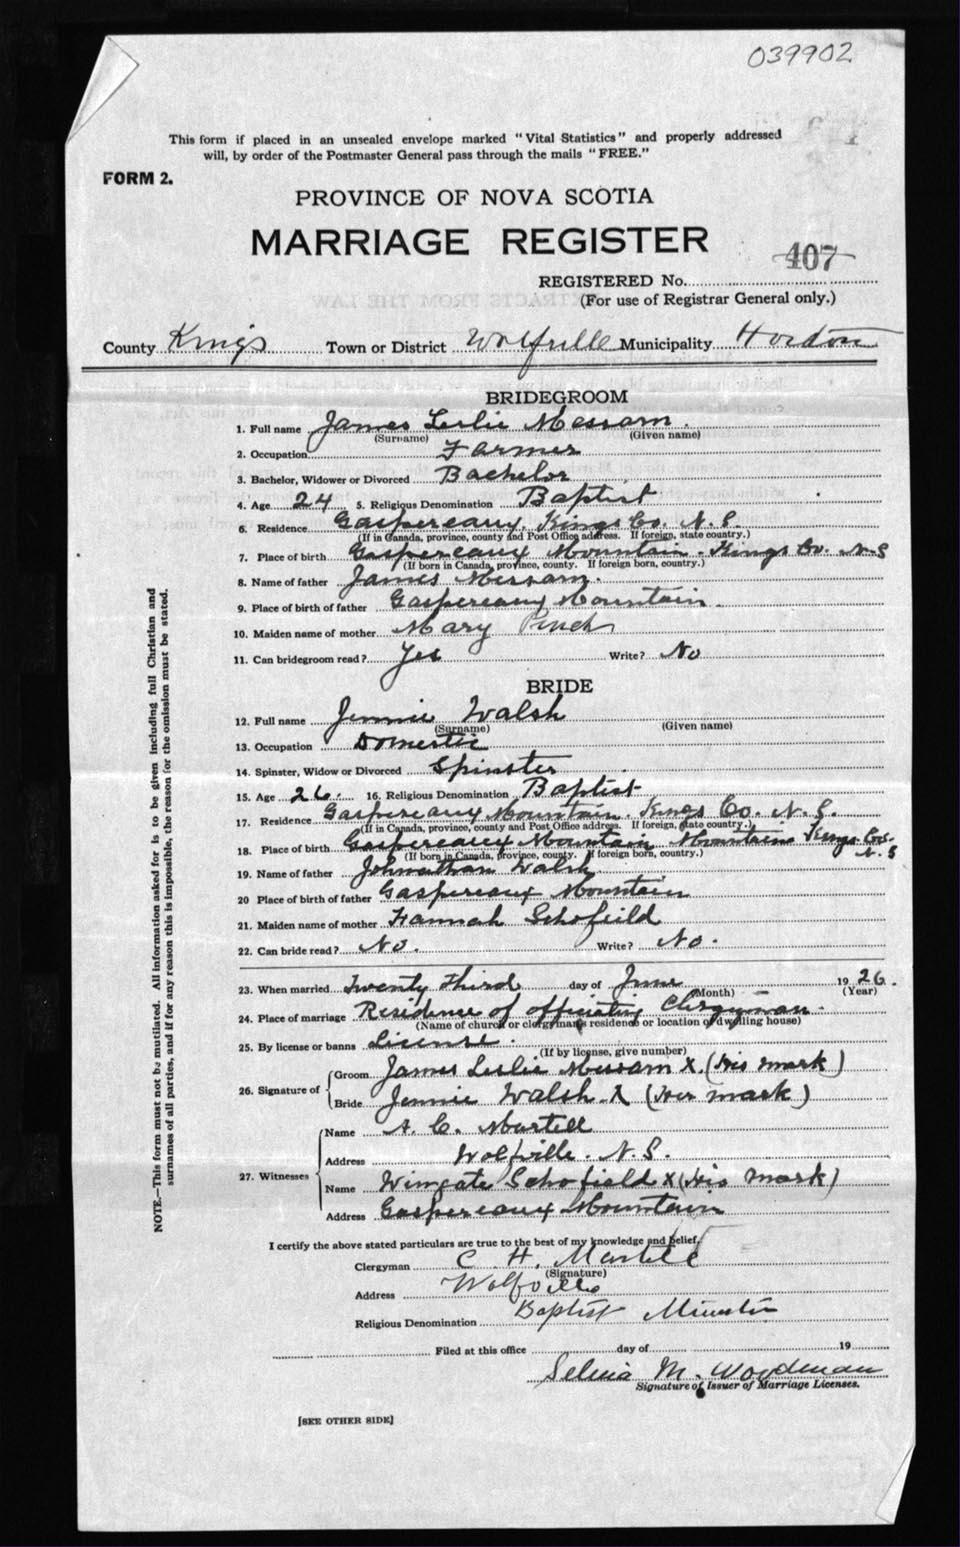 039902
This form if placed in an unsealed envelope marked "Vital Statistics" and properly addressed
will, by order of the Postmaster General pass through the mails "FREE."
FORM 2.
PROVINCE OF NOVA SCOTIA
MARRIAGE REGISTER
407
REGISTERED No.
(For use of Registrar General only.)
County Kings Town or District Wolfville Municipality Horton
BRIDEGROOM
1. Full name James Leslie Messom.
(Surname) (Given name)
2. Occupation Farmer
3. Bachelor, Widower or Divorced Bachelor
4. Age 24 5. Religious Denomination Baptist
6. Residence Gaspereaux, Kings Co. N.S.
(If in Canada, province, county and Post Office address. If foreign, state country.)
7. Place of birth Gaspereaux Mountain. Kings Co. N.S
(If born in Canada, province, county. If foreign born, country.)
8. Name of father James Messom.
9. Place of birth of father Gaspereaux Mountain.
10. Maiden name of mother Mary Pinch
11. Can bridegroom read? Yes Write? No
BRIDE
12. Full name Jennie Walsh
(Surname) (Given name)
13. Occupation Domestic
14. Spinster, Widow or Divorced Spinster
15. Age 26. 16. Religious Denomination Baptist
17. Residence Gaspereaux Mountain. Kings Co. N.S.
(If in Canada, province, county and Post Office address. If foreign, state country.)
18. Place of birth Gaspereaux Mountain Mountain Kings Co. N.S
(If born in Canada, province, county. If foreign born, country.)
19. Name of father Johnathan Walsh
20 Place of birth of father Gaspereaux Mountain
21. Maiden name of mother Hannah Schofield
22. Can bride read? No. Write? No.
23. When married Twenty Third day of June 1926.
(Month) (Year)
24. Place of marriage Residence of officiating Clergyman.
(Name of church or clergyman's residence or location of dwelling house)
25. By license or banns License.
(If by license, give number)
26. Signature of
Groom James Leslie Messom X (His mark)
Bride Jennie Walsh X (Her mark)
27. Witnesses
Name A. C. Martell
Address Wolfville. N.S.
Name Wingate Schofield X (His mark)
Address Gaspereaux Mountain
I certify the above stated particulars are true to the best of my knowledge and belief.
Clergyman C. H. Martell
(Signature)
Address Wolfville
Religious Denomination Baptist Minister
Filed at this office day of 19
M. Woodman
Signature of Issuer of Marriage Licenses.
[SEE OTHER SIDE]
NOTE.—This form must not be mutilated. All information asked for is to be given including full Christian and
surnames of all parties, and if for any reason this is impossible, the reason for the omission must be stated.